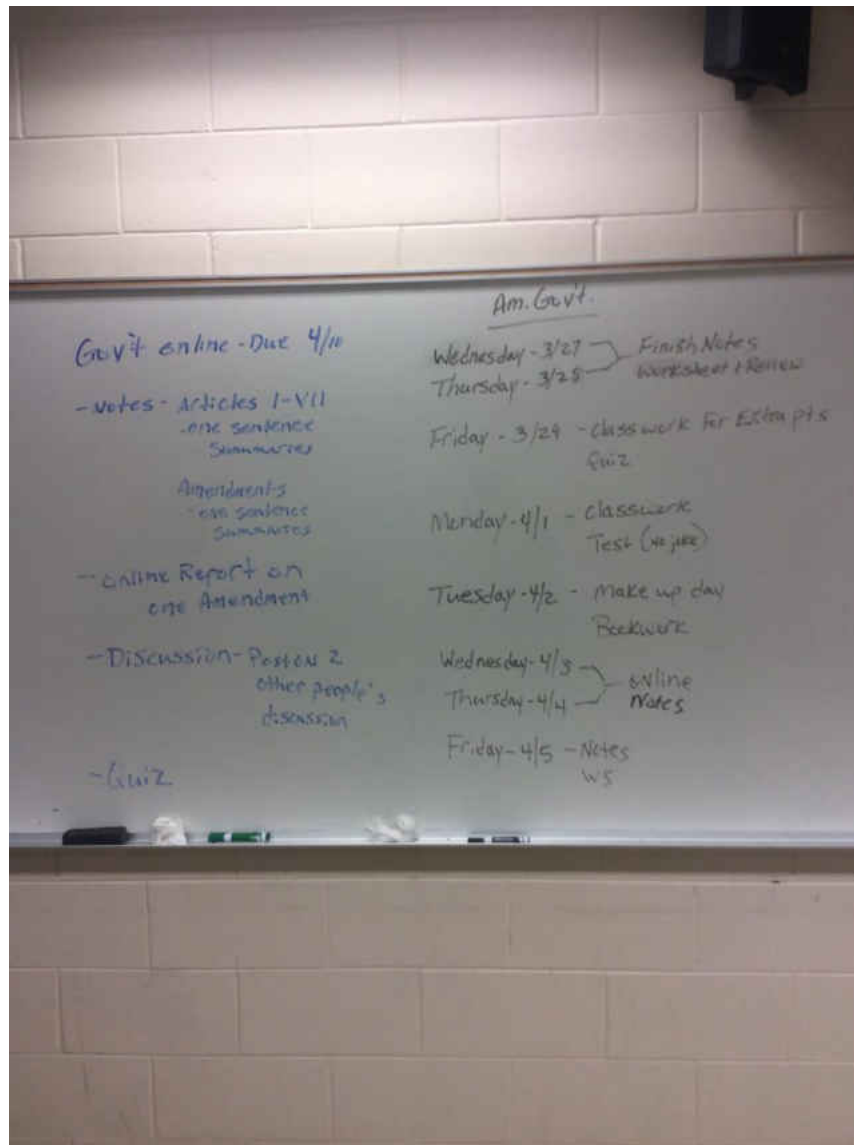 Gov't online - Due 4/10
- Notes - Articles I-VII
- one sentence
Summaries
Amendments
- one sentence
Summaries
- Online Report on
one Amendment
- Discussion - Post on 2
other people's
discussion
- Quiz
Am. Gov't.
Wednesday - 3/27
Thursday - 3/28
Finish Notes
Worksheet + Review
Friday - 3/29 - Classwork For Extra pts
Quiz
Monday - 4/1 - Classwork
Test (no joke)
Tuesday - 4/2 - Make up day
Bookwork
Wednesday - 4/3
Thursday - 4/4
online
Notes
Friday - 4/5 - Notes
WS